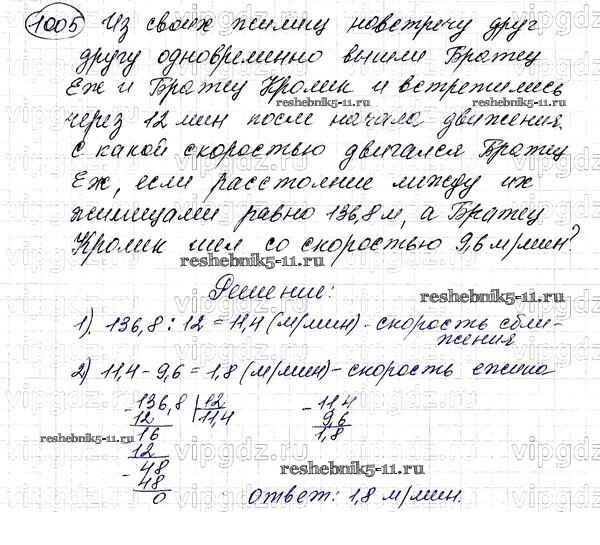 1005 Из своих жилищ навстречу друг
другу одновременно вышли Братец
Еж и Братец Кролик и встретились
reshebnik5-11.ru
через 12 мин после начала движения.
С какой скоростью двигался Братец
Еж, если расстояние между их
жилищами равно 136,8 м, а Братец
Кролик шел со скоростью 9,6 м/мин?
reshebnik5-11.ru
Решение:
1). 136,8 : 12 = 11,4 (м/мин) - скорость сбли-
жения
2) 11,4 - 9,6 = 1,8 (м/мин) - скорость ежика
- 136,8 | 12
12 11,4
- 11,4
9,6
1,8
16
reshebnik5-11.ru
12
- 48
48
0
reshebnik5-11.ru
ответ: 1,8 м/мин.